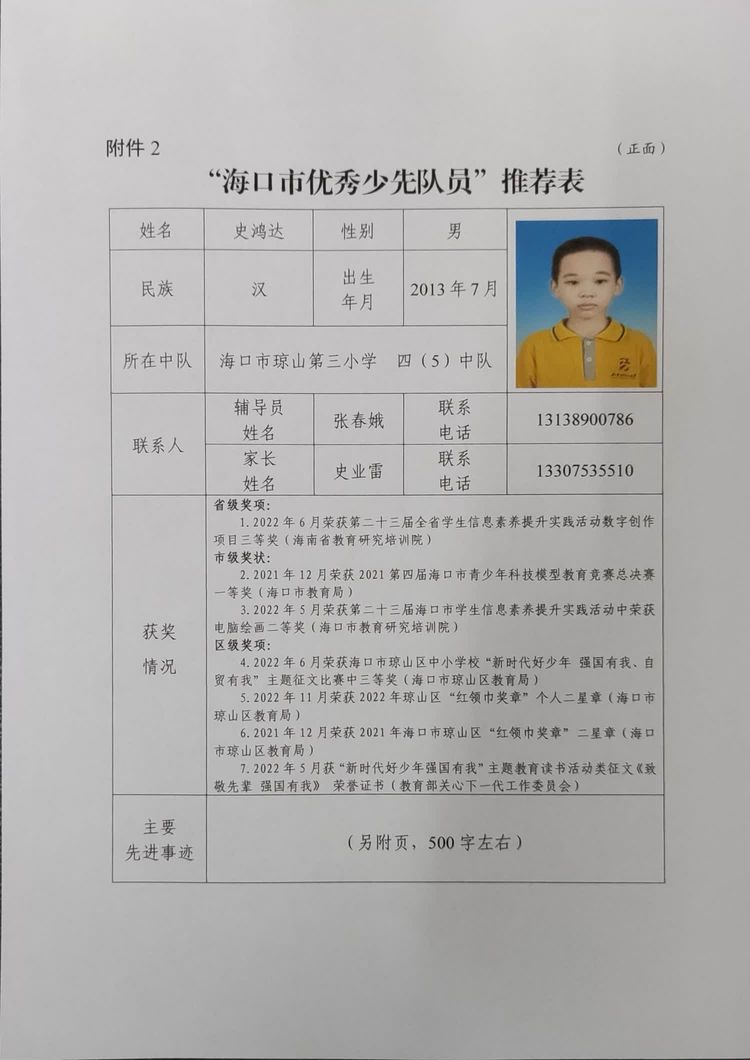 附件2
（正面）
“海口市优秀少先队员”推荐表
姓名 史鸿达 性别 男
民族 汉 出生年月 2013年7月
所在中队 海口市琼山第三小学 四（5）中队
联系人
辅导员姓名 张春娥 联系电话 13138900786
家长姓名 史业雷 联系电话 13307535510
获奖情况
省级奖项：
1.2022年6月荣获第二十三届全省学生信息素养提升实践活动数字创作
项目三等奖（海南省教育研究培训院）
市级奖状：
2.2021年12月荣获2021第四届海口市青少年科技模型教育竞赛总决赛
一等奖（海口市教育局）
3.2022年5月荣获第二十三届海口市学生信息素养提升实践活动中荣获
电脑绘画二等奖（海口市教育研究培训院）
区级奖项：
4.2022年6月荣获海口市琼山区中小学校“新时代好少年 强国有我、自
贸有我”主题征文比赛中三等奖（海口市琼山区教育局）
5.2022年11月荣获2022年琼山区“红领巾奖章”个人二星章（海口市
琼山区教育局）
6.2021年12月荣获2021年海口市琼山区“红领巾奖章”二星章（海口
市琼山区教育局）
7.2022年5月获“新时代好少年强国有我”主题教育读书活动类征文《致
敬先辈 强国有我》 荣誉证书（教育部关心下一代工作委员会）
主要
先进事迹
（另附页，500字左右）